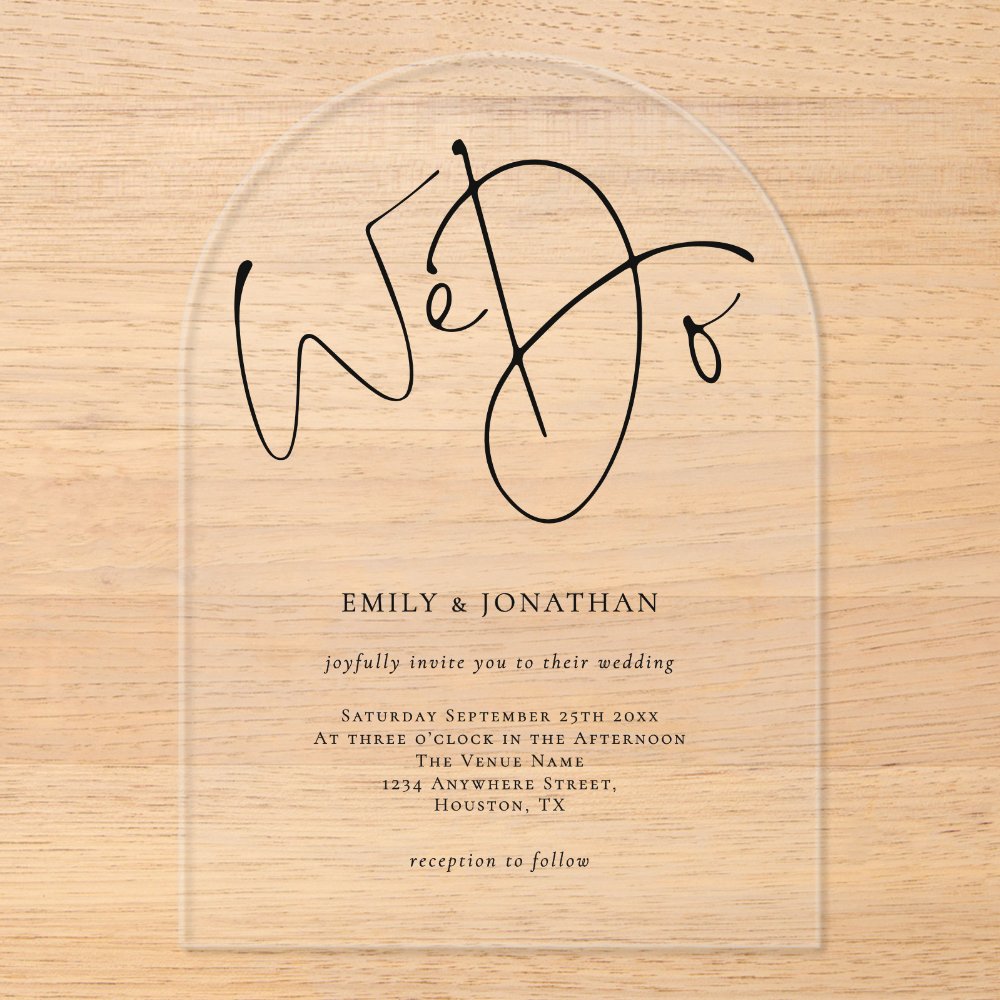 We Do
EMILY & JONATHAN
joyfully invite you to their wedding
Saturday September 25th 20xx
At three o'clock in the Afternoon
The Venue Name
1234 Anywhere Street,
Houston, TX
reception to follow